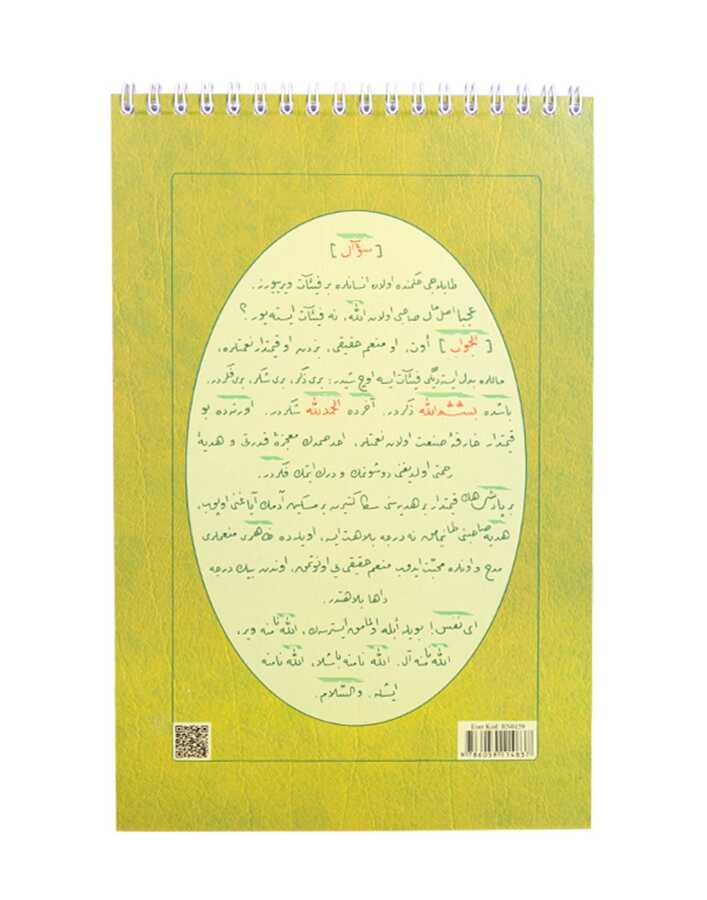 [ سؤال ]
طابلەجى حكمنده اولان انسانلره بر فيئات ويرييورز.
عجبا اصل مال صاحبى اولان الله، نه فيئات ايسته‌يور؟
[ الجواب ] أوت، او منعم حقيقى، بزدن او قيمتدار نعمتلره،
ماللره بدل ايسته‌ديگى فيئات ايسه اوچ شيدر: برى ذكر، برى شكر، برى فكردر.
باشده بسم الله ذكردر. آخرده الحمد لله شكردر. اورته‌ده بو
قيمتدار خارقهٔ صنعت اولان نعمتلر، احد صمدك معجزهٔ قدرتى و هديهٔ
رحمتى اولديغنى دوشونمك و درك ايتمك فكردر.
بر پادشاهك قيمتدار بر هديه‌سنى سڭا كتيرن بر مسكين آدمك آياغنى اوپوب،
هديه صاحبنى طانيمامق نه درجه بلاهت ايسه، اويله‌ده ظاهرى منعملرى
مدح و اونلره محبت ايدوب منعم حقيقى‌يى اونوتمق، اوندن بيڭ درجه
داها بلاهتدر.
اى نفس! بويله أبله اولمامق ايسترسه‌ك، الله نامنه وير،
الله نامنه آل. الله نامنه باشلا، الله نامنه
ايشله. والسلام.
Eser Kod: RN0159